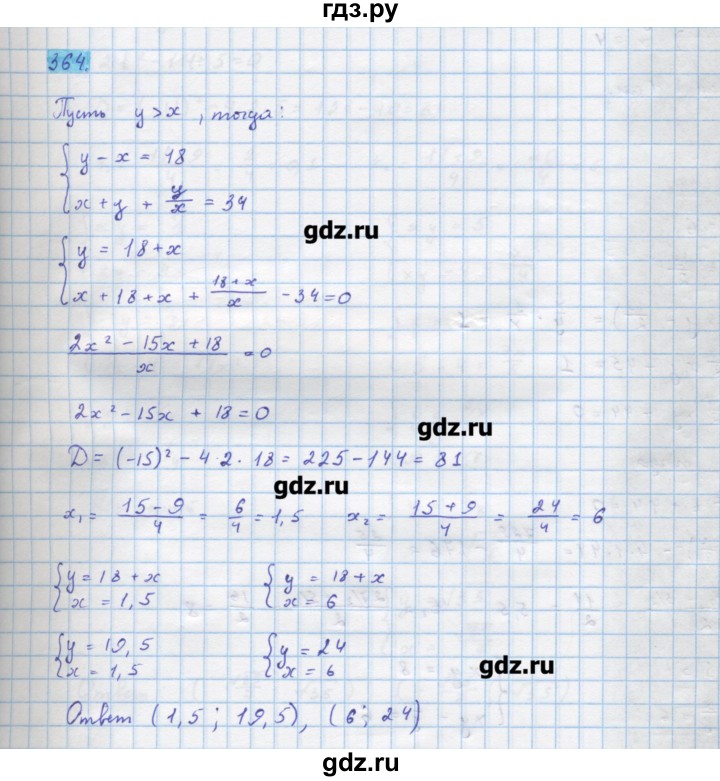 гдз.ру
364.
Пусть y > x, тогда:
{ y - x = 18
x + y + y/x = 34
gdz.ru
{ y = 18 + x
x + 18 + x + (18 + x)/x - 34 = 0
(2x² - 15x + 18)/x = 0
2x² - 15x + 18 = 0
gdz.ru
D = (-15)² - 4·2·18 = 225 - 144 = 81
gdz.ru
x₁ = (15 - 9)/4 = 6/4 = 1,5 x₂ = (15 + 9)/4 = 24/4 = 6
{ y = 18 + x { y = 18 + x
x = 1,5 x = 6
{ y = 19,5 { y = 24
x = 1,5 x = 6
gdz.ru
Ответ (1,5; 19,5), (6; 24)
gdz.ru